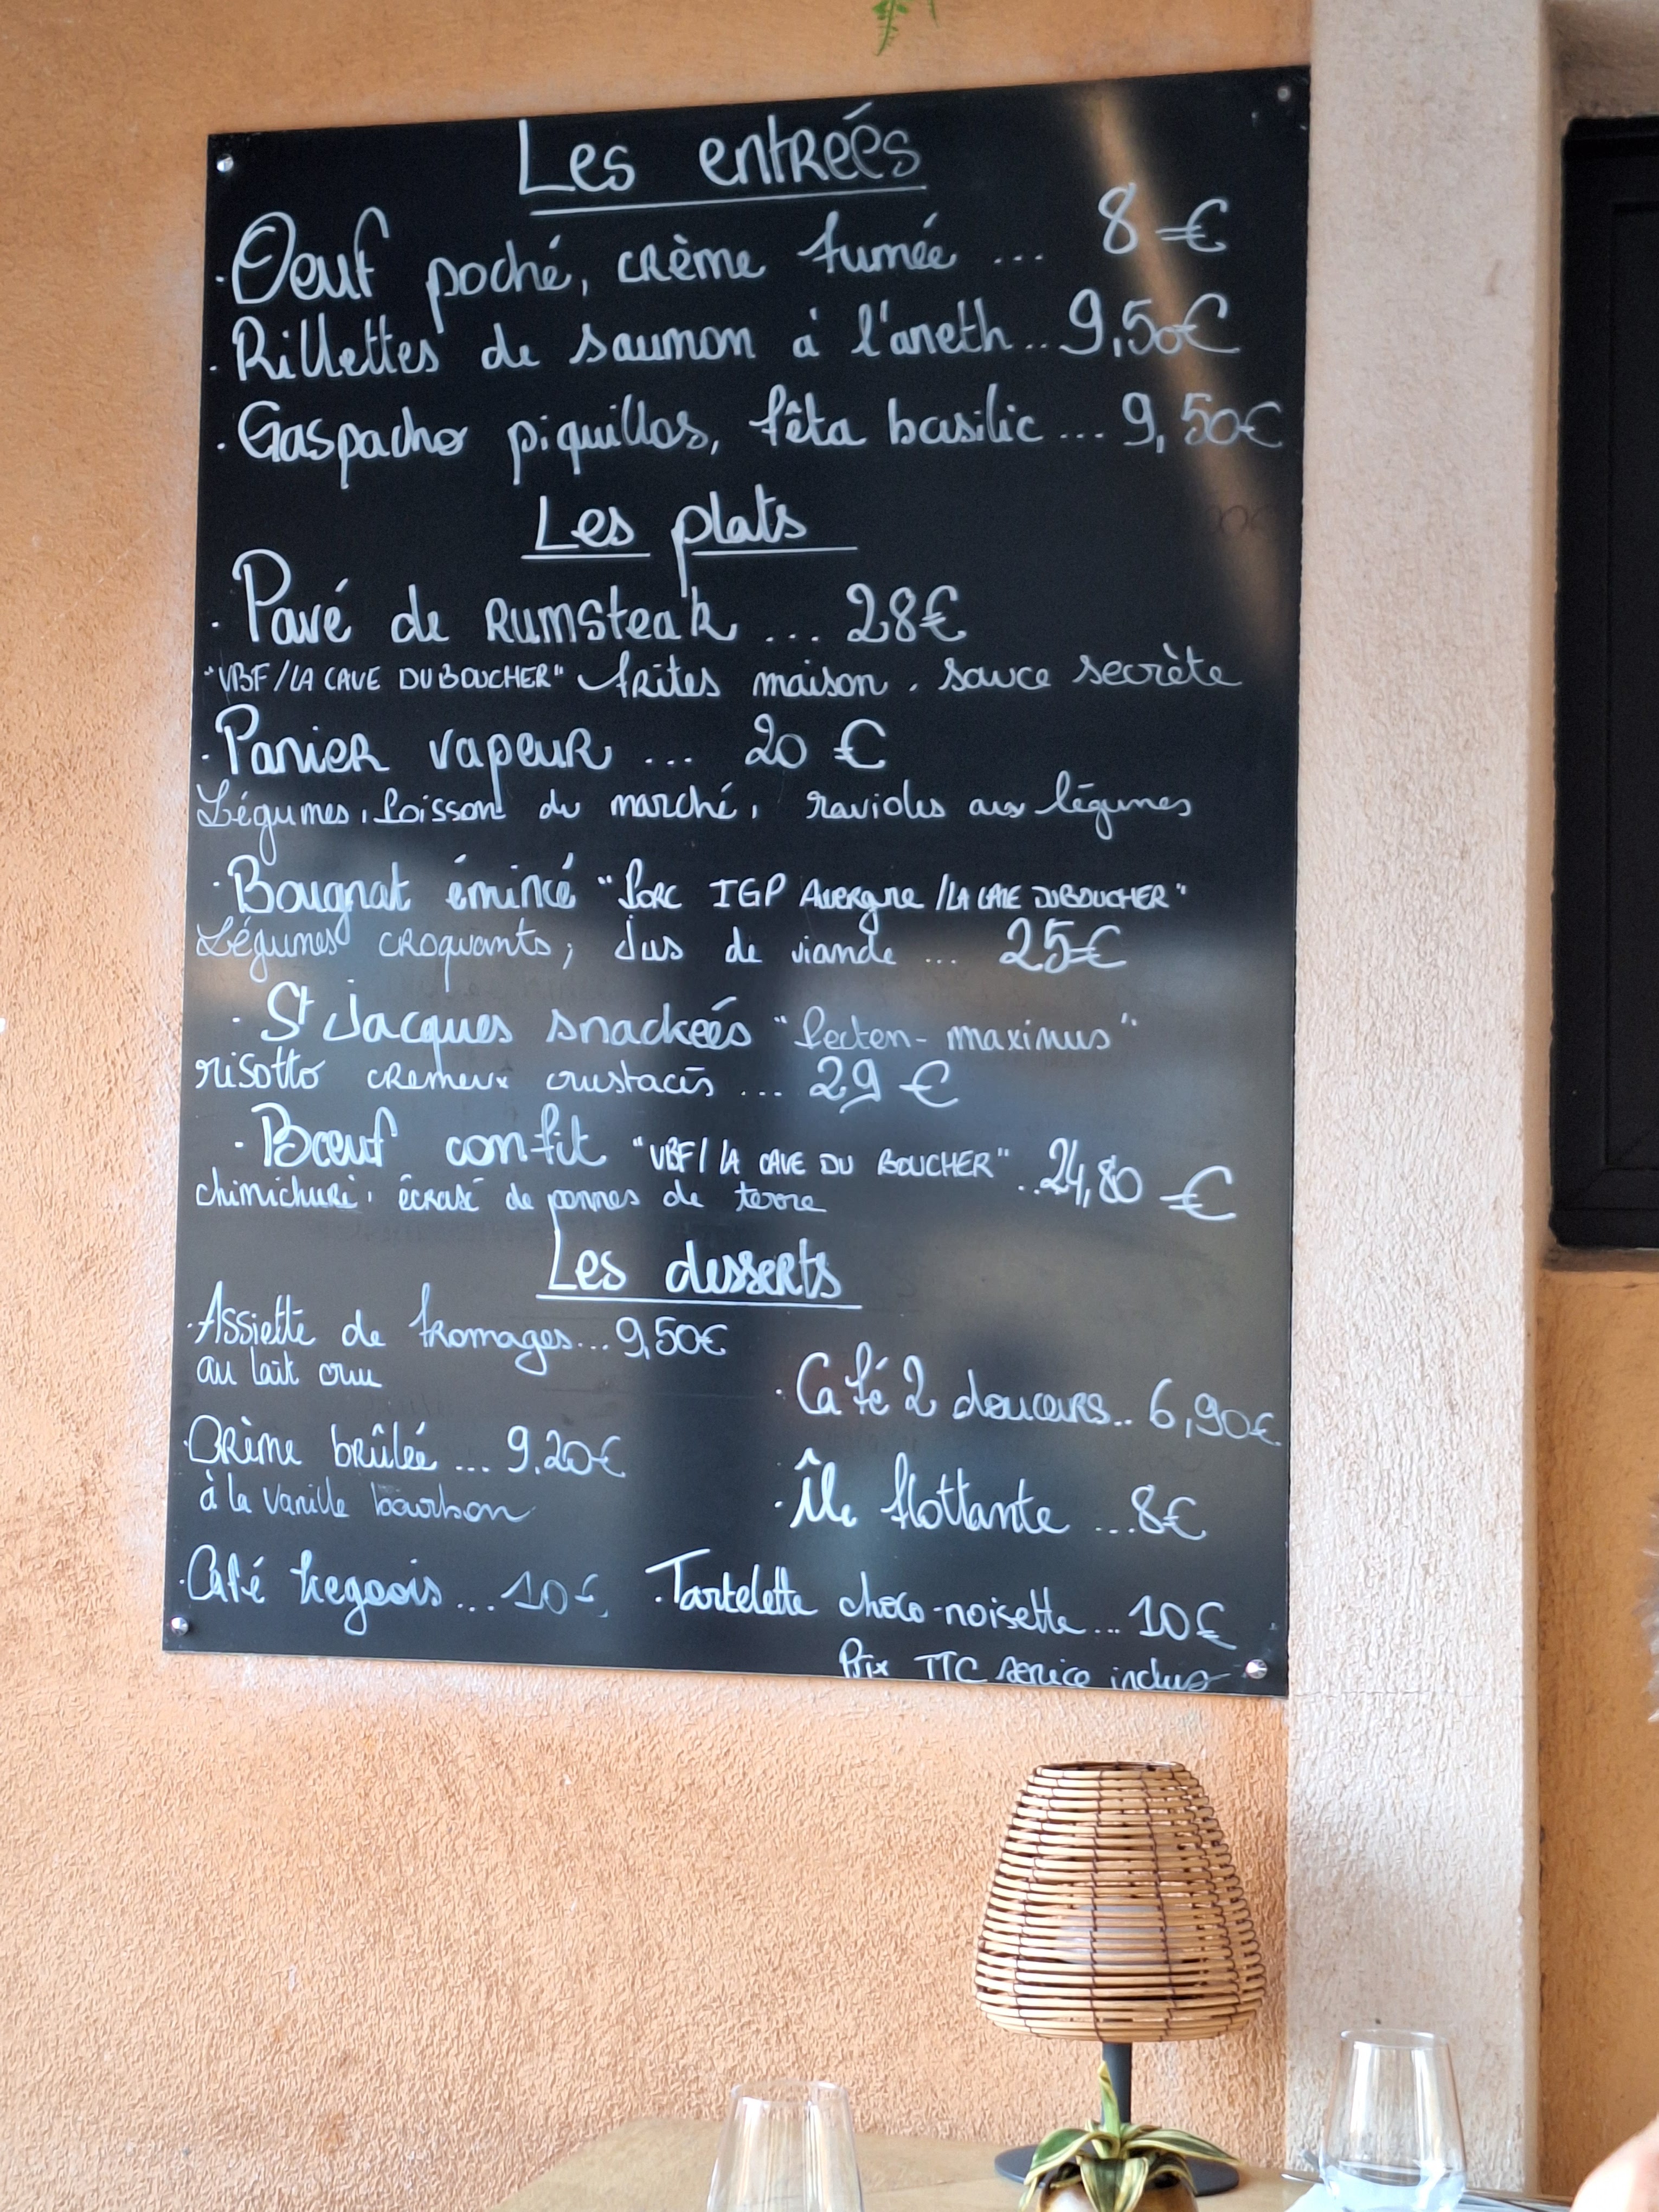 Les entreés
· Oeuf poché, crème fumée ... 8€
· Rillettes de saumon à l'aneth .. 9,50€
· Gaspacho piquillos, fêta basilic ... 9,50€
Les plats
· Pavé de Rumsteak ... 28€
"VBF/LA CAVE DU BOUCHER" frites maison, sauce secrète
· Panier vapeur ... 20 €
Légumes, Poisson du marché, ravioles aux légumes
· Bougnat émincé "Porc IGP Auvergne /LA CAVE DU BOUCHER"
Légumes croquants, jus de viande ... 25€
· St Jacques snackeés "Pecten-maximus"
risotto cremeux crustacés ... 29 €
· Bœuf confit "VBF/LA CAVE DU BOUCHER" ...24,80 €
chimichuri, écrasé de pommes de terre
Les desserts
· Assiette de fromages... 9,50€
au lait cru
· Café 2 douceurs.. 6,90€
· Crème brûlée ... 9.20€
à la Vanille bourbon
· Île flottante ...8€
· Café liegeois ... 10€
· Tartelette choco-noisette... 10€
Prix TTC service inclus